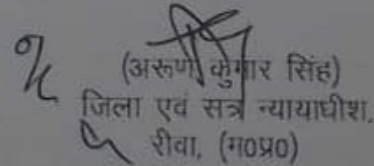 (अरूण कुमार सिंह)
जिला एवं सत्र न्यायाधीश,
रीवा, (म0प्र0)